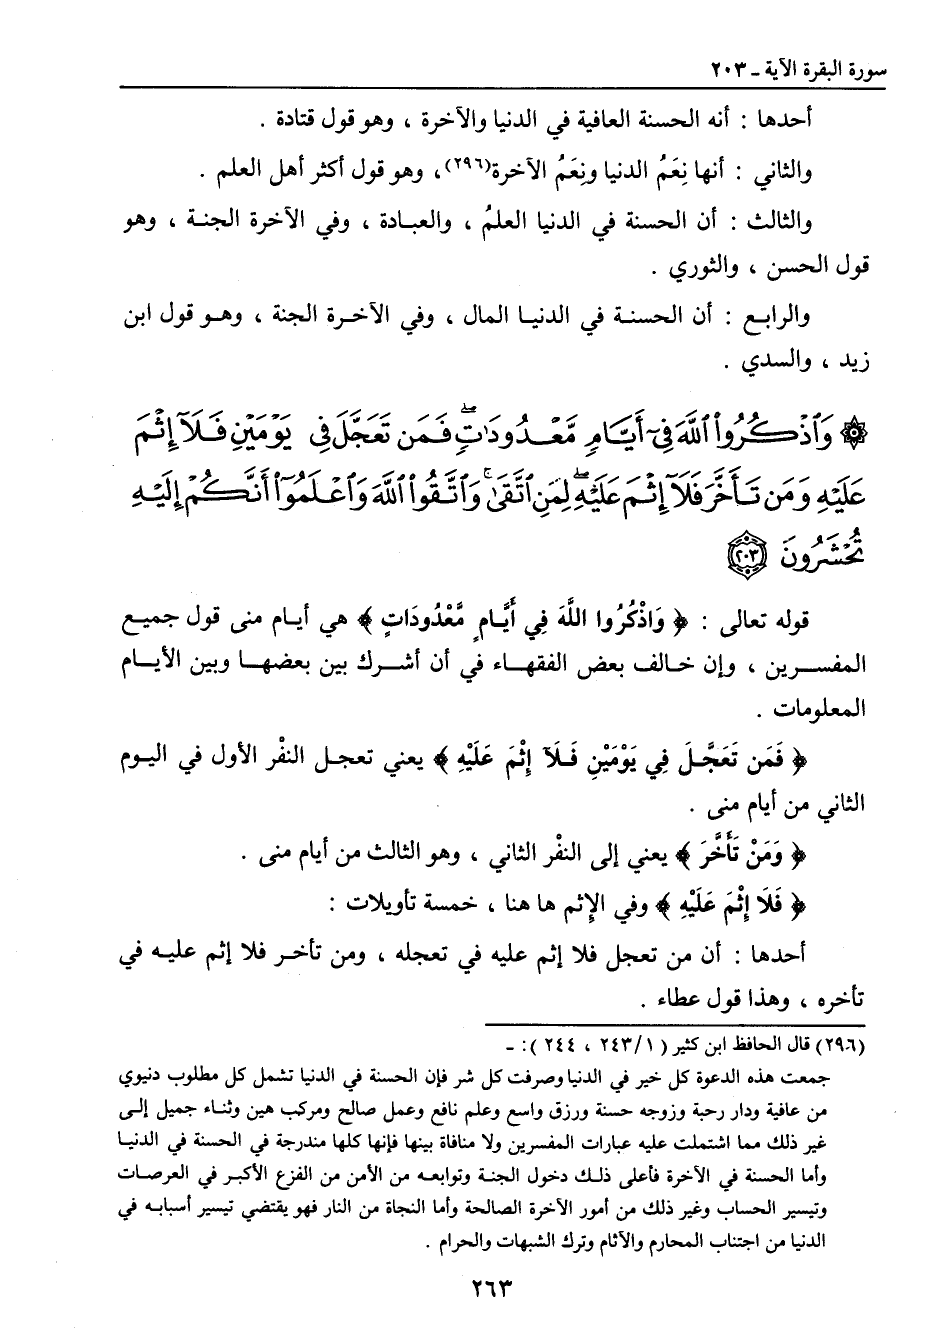 سورة البقرة الآية ـ ٢٠٣
أحدها : أنه الحسنة العافية في الدنيا والآخرة ، وهو قول قتادة .
والثاني : أنها نِعَمُ الدنيا ونِعَمُ الآخرة(٢٩٦)، وهو قول أكثر أهل العلم .
والثالث : أن الحسنة في الدنيا العلمُ ، والعبادة ، وفي الآخرة الجنة ، وهو
قول الحسن ، والثوري .
والرابع : أن الحسنة في الدنيا المال ، وفي الآخرة الجنة ، وهو قول ابن
زيد ، والسدي .
۞ وَٱذۡكُرُواْ ٱللَّهَ فِيٓ أَيَّامٖ مَّعۡدُودَٰتٖۚ فَمَن تَعَجَّلَ فِي يَوۡمَيۡنِ فَلَآ إِثۡمَ
عَلَيۡهِ وَمَن تَأَخَّرَ فَلَآ إِثۡمَ عَلَيۡهِۖ لِمَنِ ٱتَّقَىٰۗ وَٱتَّقُواْ ٱللَّهَ وَٱعۡلَمُوٓاْ أَنَّكُمۡ إِلَيۡهِ
تُحۡشَرُونَ ٢٠٣
قوله تعالى : ﴿ وَاذْكُرُوا اللَّهَ فِي أَيَّامٍ مَّعْدُودَاتٍ ﴾ هي أيام منى قول جميع
المفسرين ، وإن خالف بعض الفقهاء في أن أشرك بين بعضها وبين الأيام
المعلومات .
﴿ فَمَن تَعَجَّلَ فِي يَوْمَيْنِ فَلَآ إِثْمَ عَلَيْهِ ﴾ يعني تعجل النفْر الأول في اليوم
الثاني من أيام منى .
﴿ وَمَنْ تَأَخَّرَ ﴾ يعني إلى النفْر الثاني ، وهو الثالث من أيام منى .
﴿ فَلَا إِثْمَ عَلَيْهِ ﴾ وفي الإثم ها هنا ، خمسة تأويلات :
أحدها : أن من تعجل فلا إثم عليه في تعجله ، ومن تأخر فلا إثم عليه في
تأخره ، وهذا قول عطاء .
(٢٩٦) قال الحافظ ابن كثير ( ١/ ٢٤٣ ، ٢٤٤ ): ـ
جمعت هذه الدعوة كل خير في الدنيا وصرفت كل شر فإن الحسنة في الدنيا تشمل كل مطلوب دنيوي
من عافية ودار رحبة وزوجه حسنة ورزق واسع وعلم نافع وعمل صالح ومركب هين وثناء جميل إلى
غير ذلك مما اشتملت عليه عبارات المفسرين ولا منافاة بينها فإنها كلها مندرجة في الحسنة في الدنيا
وأما الحسنة في الآخرة فأعلى ذلك دخول الجنة وتوابعه من الأمن من الفزع الأكبر في العرصات
وتيسير الحساب وغير ذلك من أمور الآخرة الصالحة وأما النجاة من النار فهو يقتضي تيسير أسبابه في
الدنيا من اجتناب المحارم والآثام وترك الشبهات والحرام .
٢٦٣